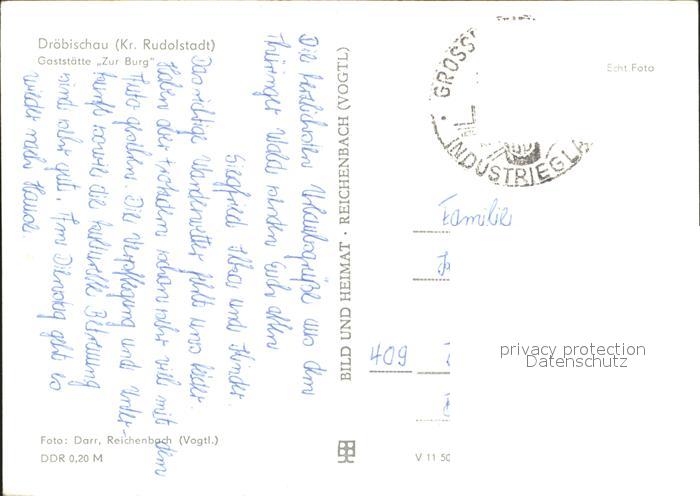 Dröbischau (Kr. Rudolstadt)
Gaststätte „Zur Burg“
Die herzlichsten Urlaubsgrüße aus dem
Thüringer Wald senden Euch allen
Siegfried Elke und Kinder.
Das richtige Wanderwetter fehlt uns leider.
Haben aber trotzdem schon sehr viel mit dem
Auto gesehen. Die Verpflegung und Unter-
kunft sowie die kulturelle Betreuung
sind sehr gut. Am Dienstag geht es
wieder nach Hause.
Foto: Darr, Reichenbach (Vogtl.)
DDR 0,20 M
BILD UND HEIMAT · REICHENBACH (VOGTL)
V 11 50
Echt Foto
GROSS
INDUSTRIEGLA
Familie
409
privacy protection
Datenschutz